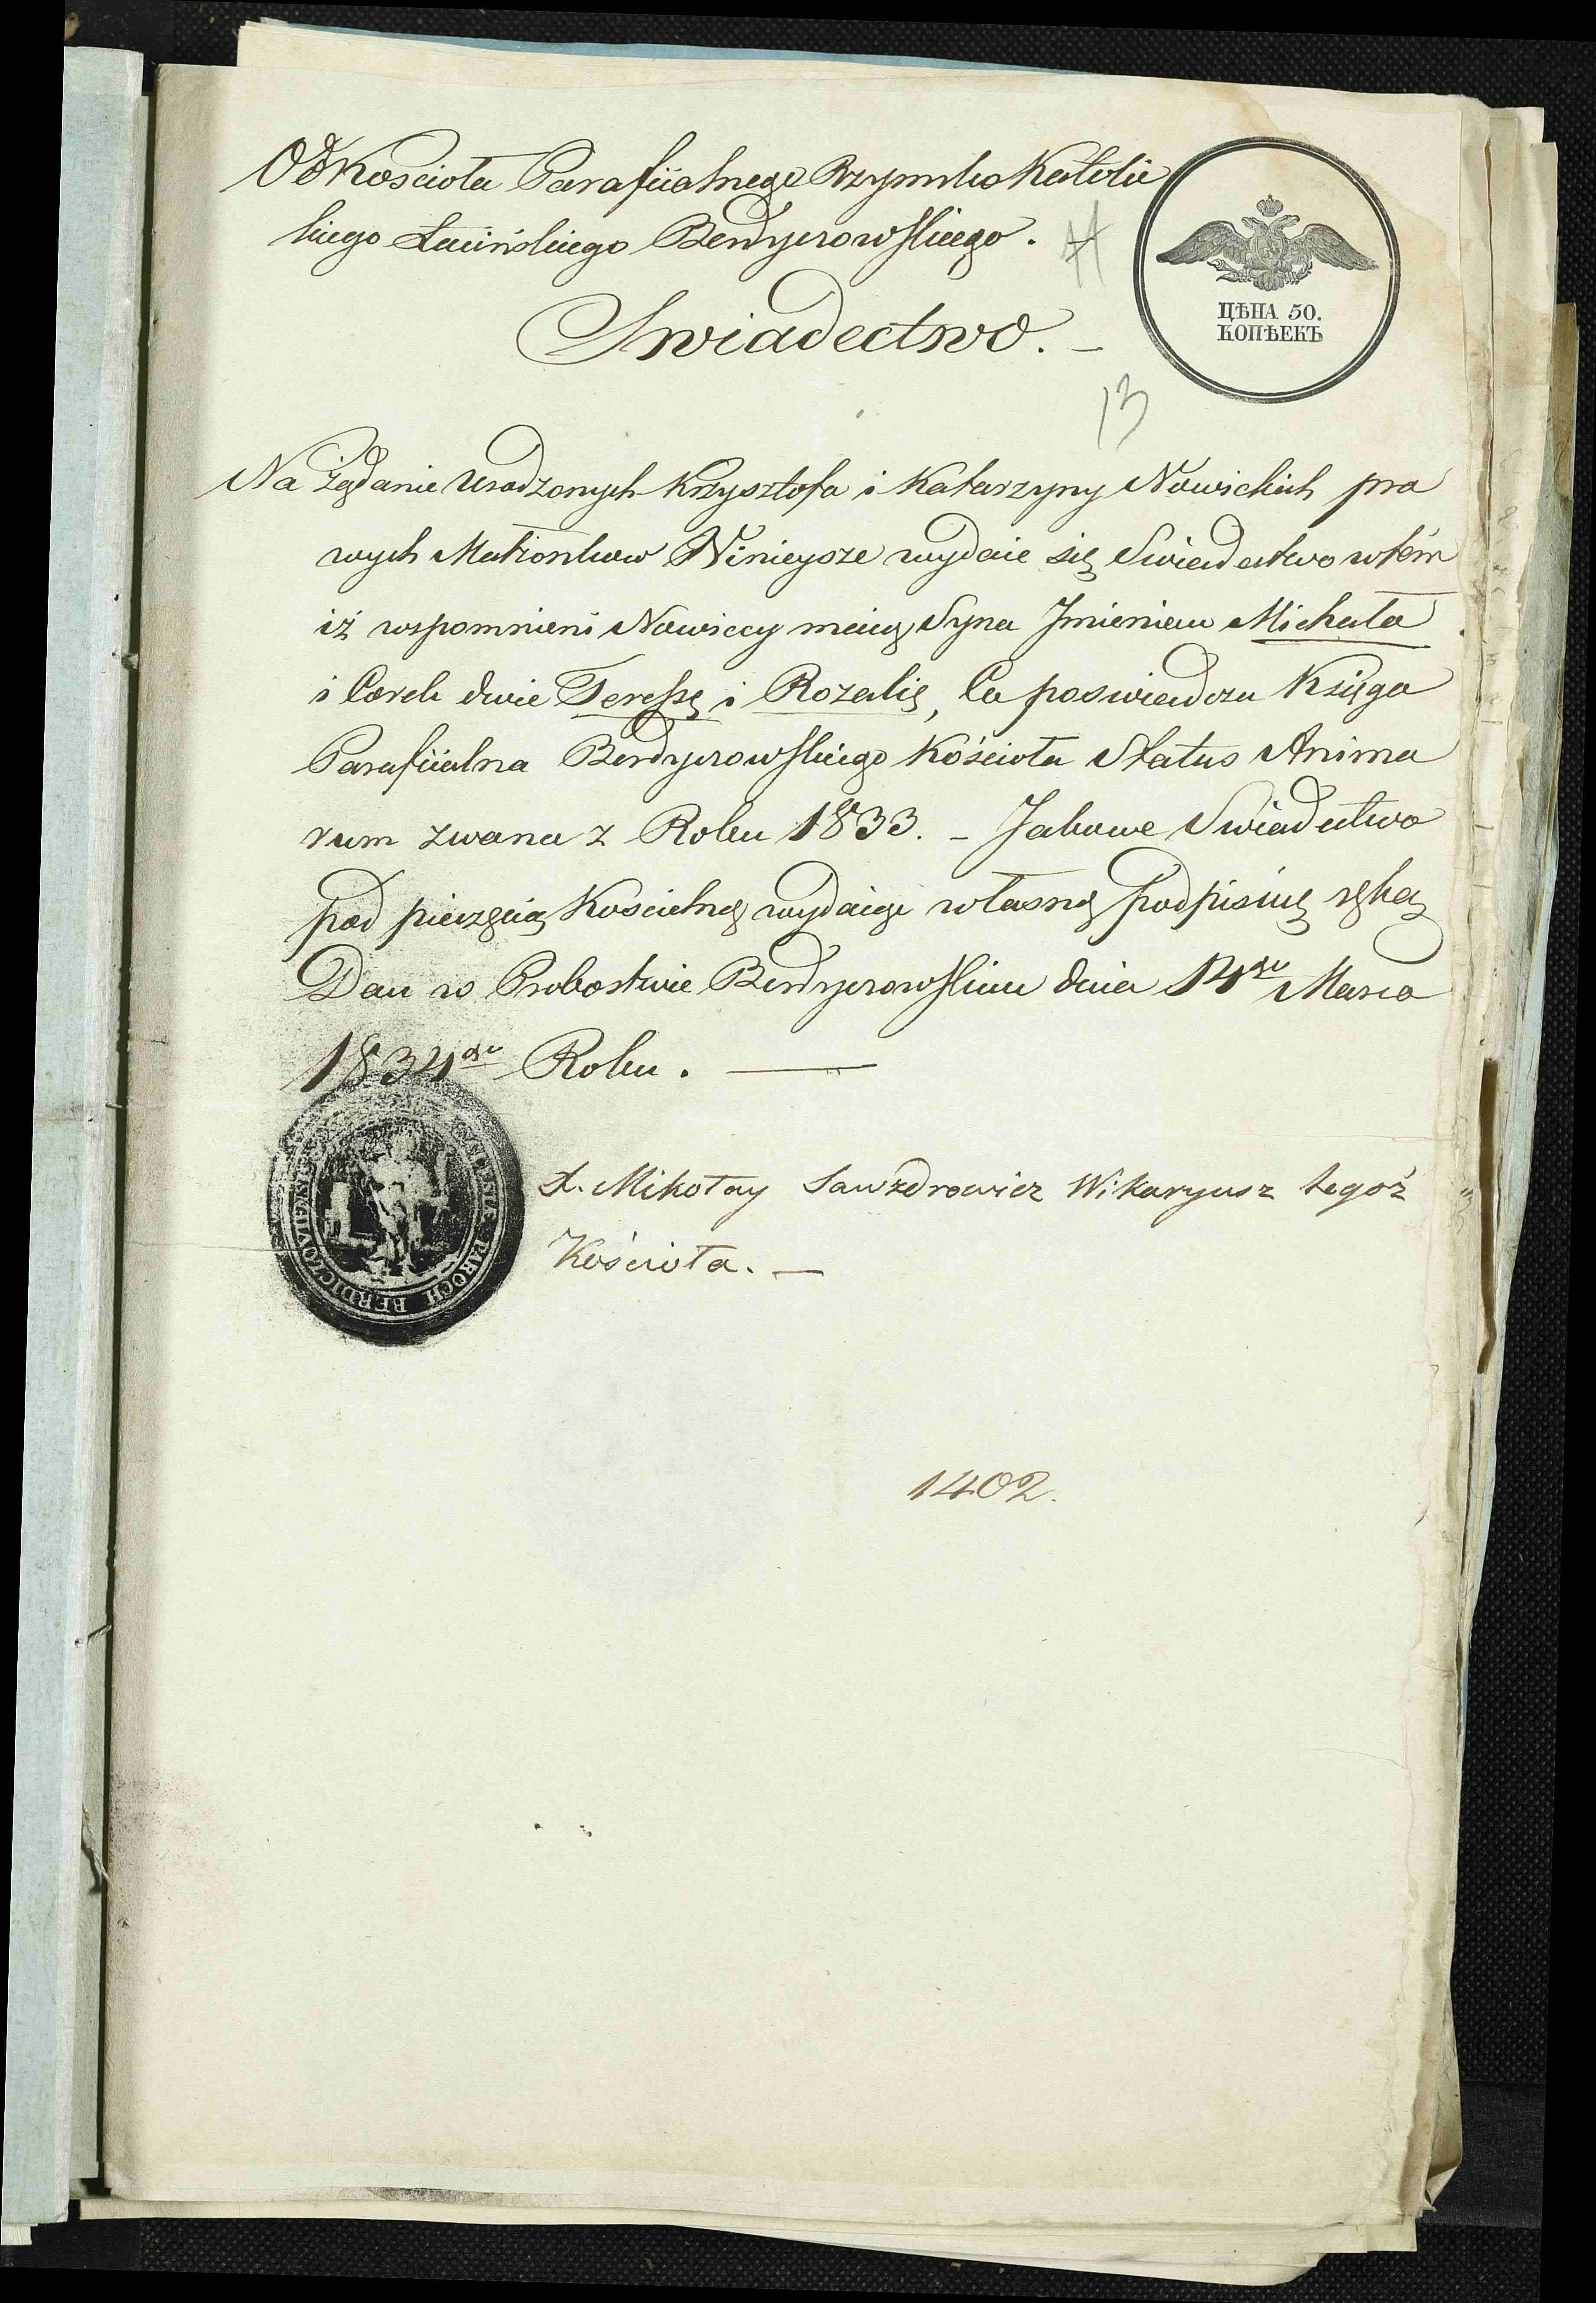 Od Kościoła Parafiialnego Rzymsko Katolic
kiego Łacińskiego Berdyczowskiego.
ЦѢНА 50.
КОПѢЕКЪ
Swiadectwo. -
13
Na żądanie Urodzonych Krzysztofa i Katarzyny Nowickich pra
wych Małżonkow Ninieysze wydaie się Swiadectwo w tém
iż wspomnieni Nowiccy maią Syna Jmieniem Michała
i Corek dwie Teressę i Rozalię, Co poswiadcza Księga
Parafiialna Berdyczowskiego Kościoła Status Anima
rum zwana z Roku 1833. - Jakowe Swiadectwo
pod pieczęcią Koscielną wydaiąc własną podpisuię ręką
Dan w Probostwie Berdyczowskim dnia 14go Marca
1834go Roku.
X. Mikołay Sawzdrowicz Wikaryusz tegoż
Kościoła. -
PAROCH BERDICZOV
1402.